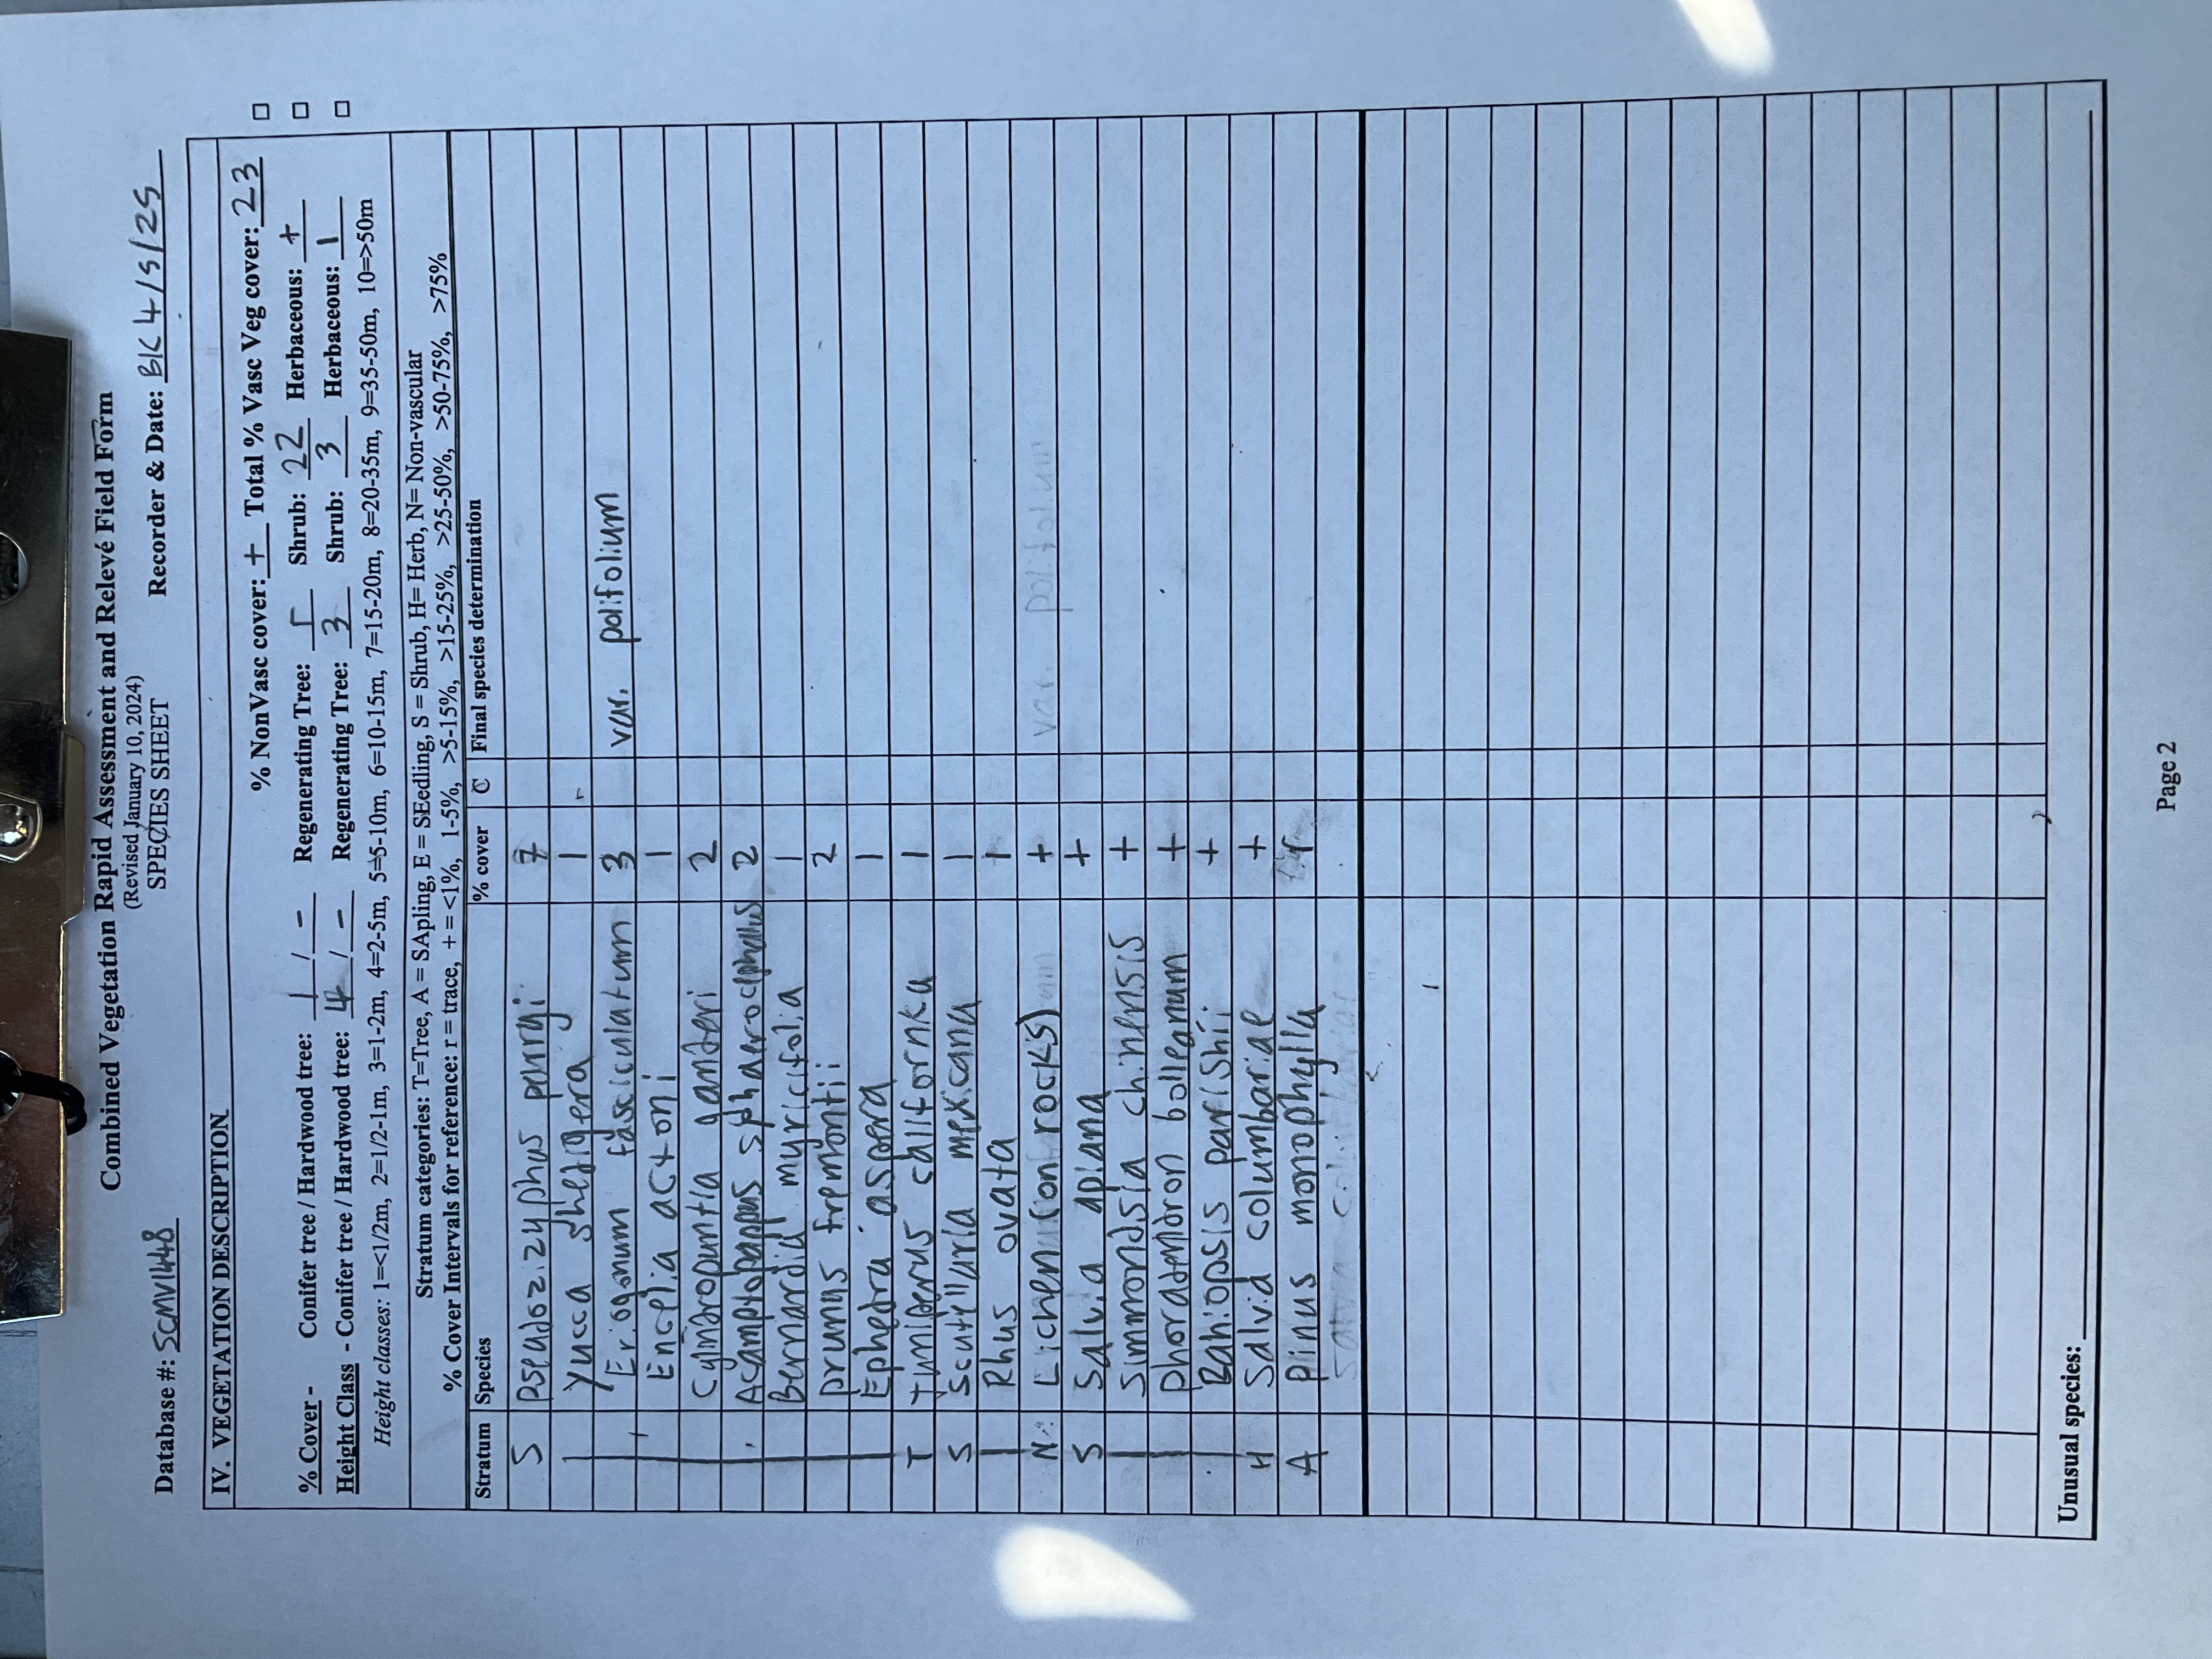 Combined Vegetation Rapid Assessment and Relevé Field Form
(Revised January 10, 2024)
SPECIES SHEET
Database #: SCMV1448 Recorder & Date: BK 4/5/25
IV. VEGETATION DESCRIPTION
% NonVasc cover: + Total % Vasc Veg cover: 23 □
% Cover - Conifer tree / Hardwood tree: 1 / - Regenerating Tree: r Shrub: 22 Herbaceous: + □
Height Class - Conifer tree / Hardwood tree: 4 / - Regenerating Tree: 3 Shrub: 3 Herbaceous: 1 □
Height classes: 1=<1/2m, 2=1/2-1m, 3=1-2m, 4=2-5m, 5=5-10m, 6=10-15m, 7=15-20m, 8=20-35m, 9=35-50m, 10=>50m
Stratum categories: T=Tree, A = SApling, E = SEedling, S = Shrub, H= Herb, N= Non-vascular
% Cover Intervals for reference: r = trace, + = <1%, 1-5%, >5-15%, >15-25%, >25-50%, >50-75%, >75%
Stratum Species % cover C Final species determination
S Pseudoziziphus parryi 7
| Yucca shedigera 1
Eriogonum fasciculatum 3 var. polifolium
Encelia actoni 1
Cylindropuntia ganderi 2
Acamptopappus sphaerocephalus 2
Bernardia myricifolia 1
Prunus fremontii 2
Ephedra aspera 1
T Juniperus californica 1
S Scutellaria mexicana 1
| Rhus ovata +
N Lichen (on rocks) + var. polifolium
S Salvia apiana +
Simmondsia chinensis +
Phoradendron bolleanum +
Bahiopsis parishii +
H Salvia columbariae +
A Pinus monophylla r
Salvia columbariae
Unusual species:
Page 2